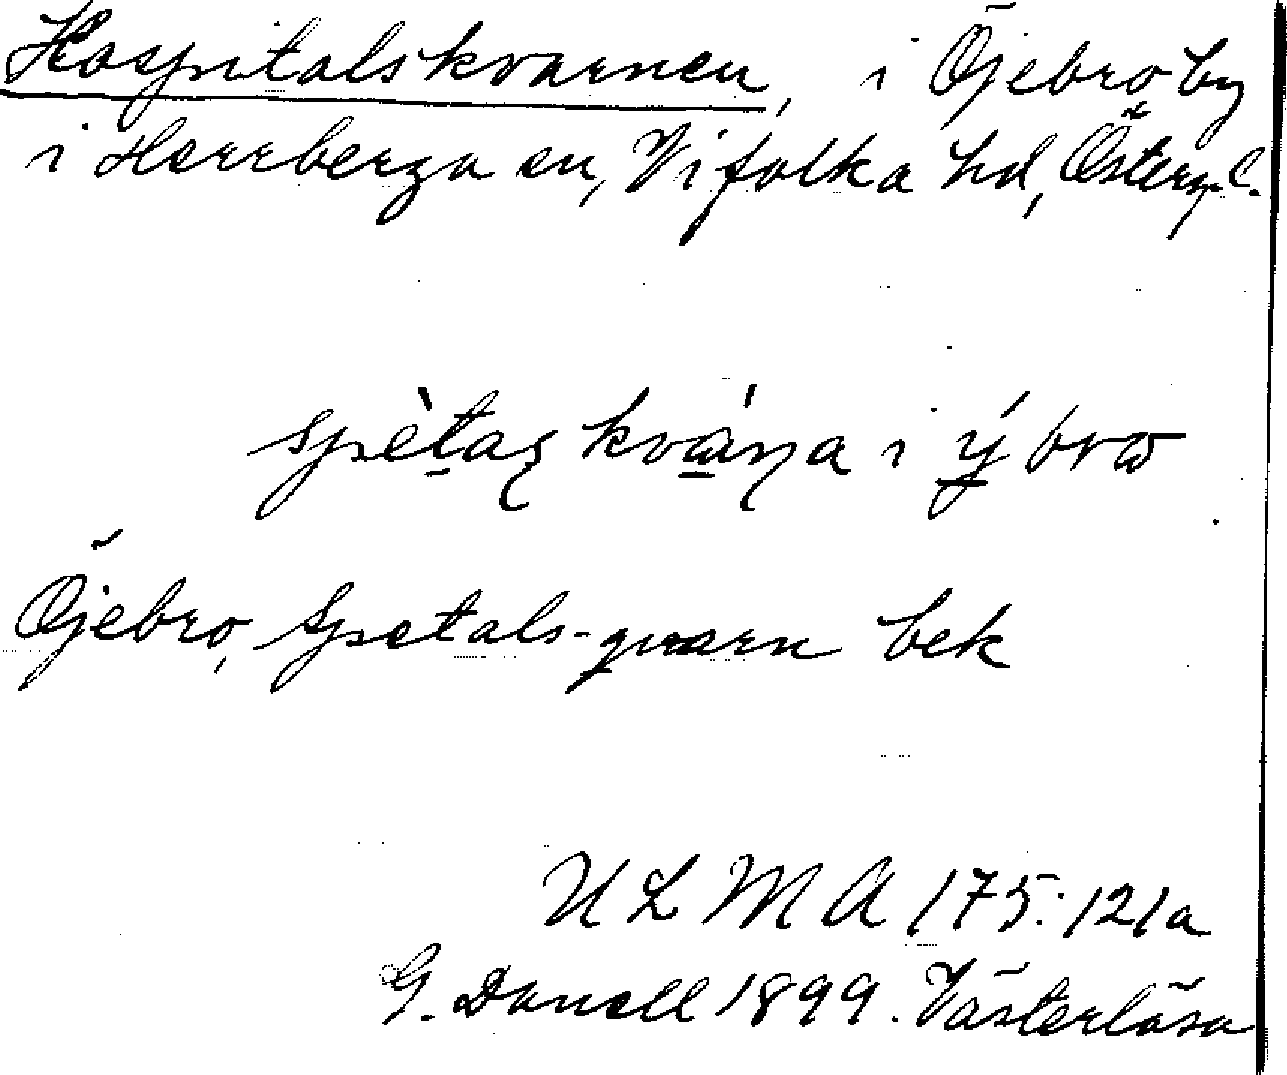 Hospitalskvarnen, i Öjebro by
i Herrberga sn, Vifolka hd, Österg. l.
spètaɭʂ kvàɳa i ýbrω
Öjebro, Spetals-quarn bek
ULMA 175:121a
G. Danell 1899. Västerlösa